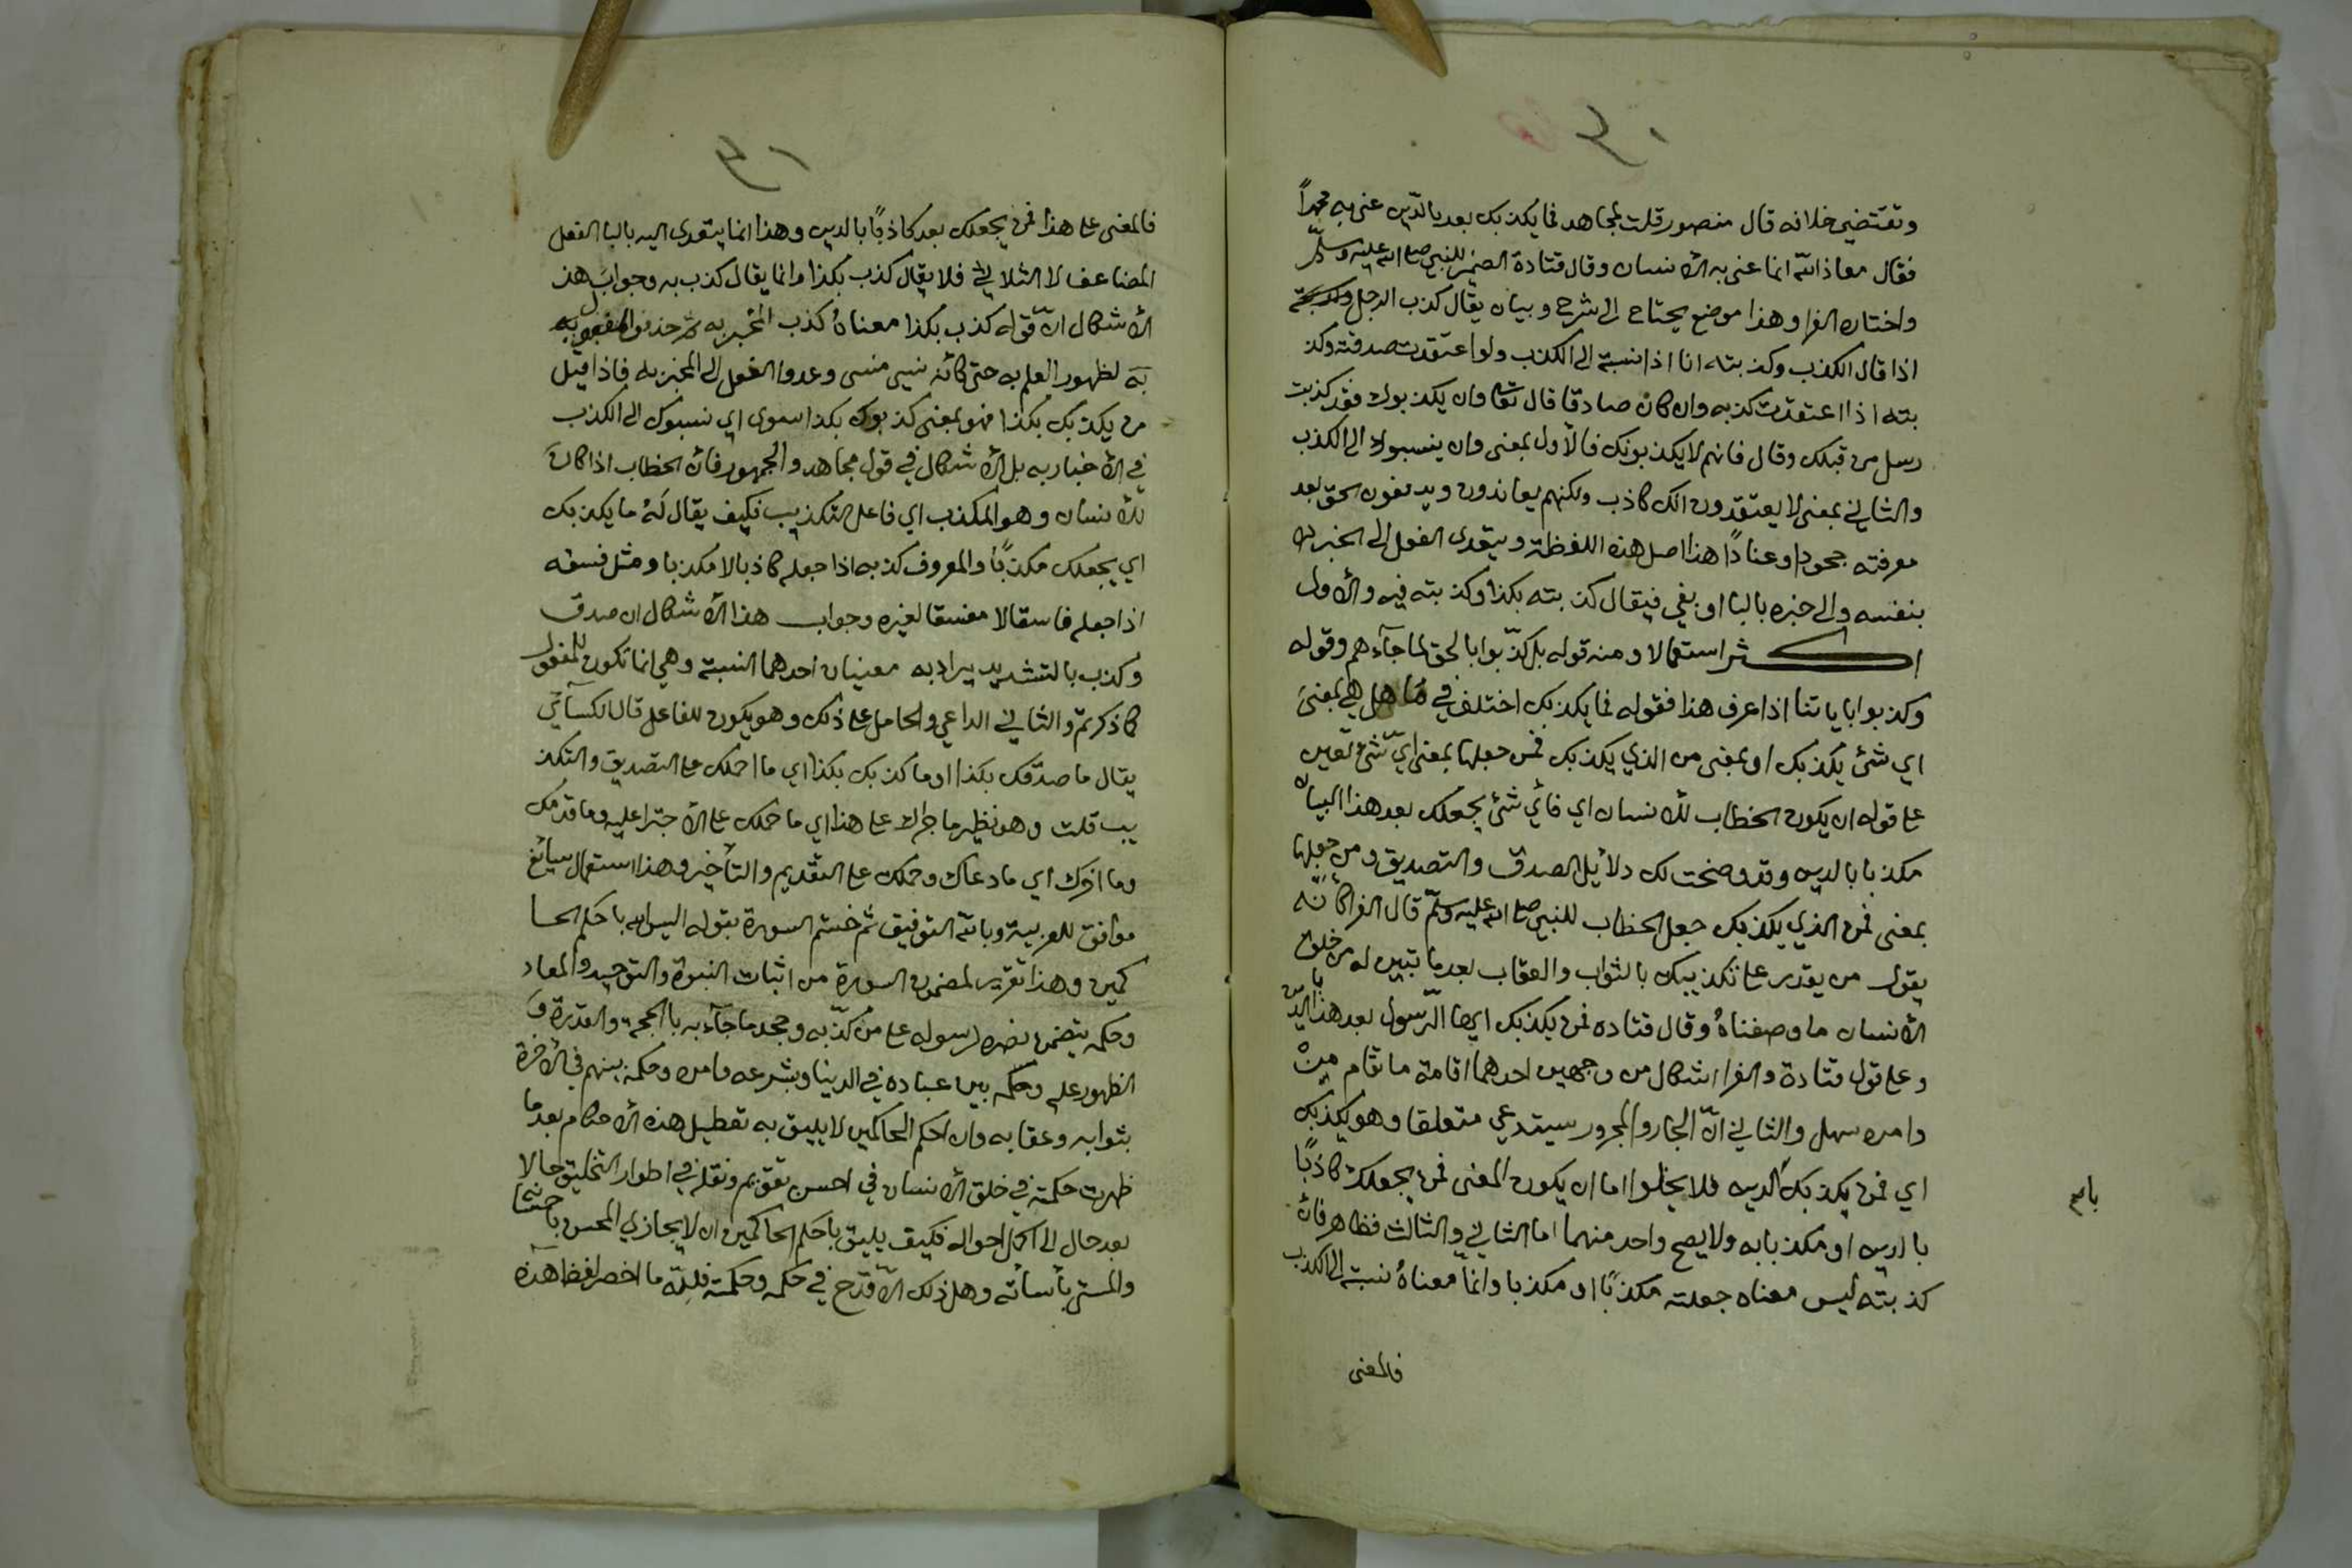 ٣٠
وتقتضي خلافه قال منصور قلت لمجاهد فما يكذبك بعد بالدين عنى به محمداً
فقال معاذ الله انما عنى به الأنسان وقال قتادة الضمير للنبي صلى الله عليه وسلم
واختاره الفرا وهذا موضع يحتاج الى شرح وبيان يقال كذب الرجل
اذا قال الكذب وكذبته انا اذا نسبته الى الكذب ولو اعتقدت صدقه وكذ
بته اذا اعتقدت كذبه وان كان صادقا قال تعا وان يكذبوك فقد كذبت
رسل من قبلك وقال فانهم لا يكذبونك فالأول بمعنى وان ينسبوك الى الكذب
والثاني بمعنى لا يعتقدون انك كاذب ولكنهم يعاندون ويدفعون الحق بعد
معرفته جحودا وعنادًا هذا اصل هذه اللفظة ويتعدى الفعل الى الخبر
بنفسه والى خبره بالبا او بفي فيقال كذبته بكذا وكذبته فيه والأول
اكثر استعمالا ومنه قوله بل كذّبوا بالحق لما جآءهم وقوله
وكذبوا باياتنا اذا عرف هذا فقوله فما يكذبك اختلف في ما هل هي بمعنى
اي شئ يكذبك او بمعنى من الذي يكذبك فمن جعلها بمعنى ايّ شئ تعين
على قوله ان يكون الخطاب للأنسان اي فأي شئ يجعلك بعد هذا البيان
مكذبا بالدين وقد وضحت لك دلائل الصدق والتصديق ومن جعلها
بمعنى فمن الذي يكذبك جعل الخطاب للنبي صلى الله عليه وسلم قال الفرا كأنّه
يقول من يقدر على تكذيبك بالثواب والعقاب بعدما تبين له من خلق
الأنسان ما وصفناهُ وقال قتاده فمن يكذبك ايها الرّسول بعد هذا بالدّين
وعلى قول قتادة والفرا اشكال من وجهين احدهما اقامة ما مقام مِنْ
وامره سهل والثاني انّ الجار والمجرور يستدعي متعلقا وهو يكذبك
اي فمن يكذبك بالدين فلا يخلوا اما ان يكون المعنى فمن يجعلك كاذبًا
بالدين او مكذبا به ولا يصح واحد منهما اما الثاني والثالث فظاهر فان
كذبته ليس معناه جعلته مكذبًا او مكذبا وانما معناهُ نسبته الى الكذب
فالمعنى
٣١
فالمعنى على هذا فمن يجعلك بعد كاذبًا بالدين وهذا انما يتعدى اليه بالبا الفعل
المضاعف لا الثلاثي فلا يقال كذب بكذا وانما يقال كذب به وجواب هذ
الأشكال انّ قوله كذب بكذا معناهُ كذب المخبر به ثم حذف المفعول به
به لظهور العلم به حتى كأنه نسي منسي وعدوا الفعل الى المخبر به فاذا قيل
من يكذبك بكذا فهو بمعنى كذبوك بكذا سوى اي نسبوك الى الكذب
في الأخبار به بل الأشكال في قول مجاهد والجمهور فان الخطاب اذا كان
للأنسان وهو المكذب اي فاعل التكذيب فكيف يقال لَهُ ما يكذبك
اي يجعلك مكذبًا والمعروف كذبه اذا جعله كاذبا لا مكذبا ومثل فسقه
اذا جعله فاسقا لا مفسقا لغيره وجواب هذا الأشكال ان صدق
وكذب بالتشديد يراد به معنيان احدهما النسبة وهي انما تكون للمفعول
كما ذكرتم والثاني الداعي والحامل على ذلك وهو يكون للفاعل قال الكسآئي
يقال ما صدّقك بكذا او ما كذبك بكذا اي ما احملك على التصديق والتكذ
يب قلت وهو نظير ما جراك على هذا اي ما حملك على الأجترا عليه وما قدمك
وما اخرك اي ما دعاك وحملك على التقديم والتأخير وهذا استعمال سائغ
موافق للعربية وبالله التوفيق ثم ختم السورة بقوله اليس الله باحكم الحا
كمين وهذا تقرير لمضمون السورة من اثبات النبوة والتوحيد والمعاد
وحكمه يتضمن نصره لرسوله على من كذّبه وجحد ما جآء به بالحجة والقدرة و
الظهور عليه وحكمه بين عباده في الدنيا وبشرعه وامره وحكمه بينهم في الأخرة
بثوابه وعقابه وان احكم الحاكمين لا يليق به تعطيل هذه الأحكام بعدما
ظهرت حكمته في خلق الأنسان في احسن تقويم ونقله في اطوار التخليق حالا
بعد حال الى اكمل احواله فكيف يليق باحكم الحاكمين ان لا يجازي المحسن
والمسئ بأسأته وهل ذلك الّا قدح في حكمه وحكمته فلله ما اخصر لفظ هذه